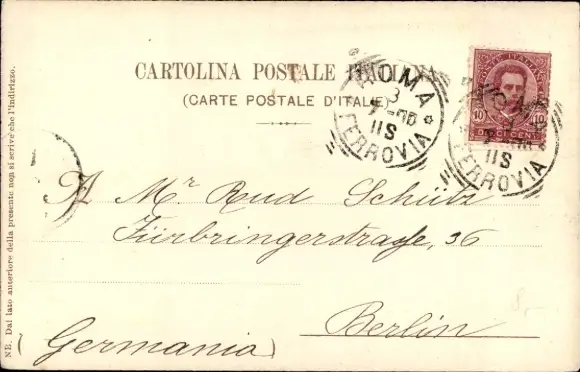 CARTOLINA POSTALE ITALIANA
(CARTE POSTALE D'ITALIE)
ROMA
3
11S
FERROVIA
POSTE ITALIANE
10 10
DIECI CENT
ROMA
11S
FERROVIA
A Mr Rud Schütz
Fürbringerstraße, 36
Berlin
(Germania)
8.-
NB. Dal lato anteriore della presente non si scrive che l'indirizzo.